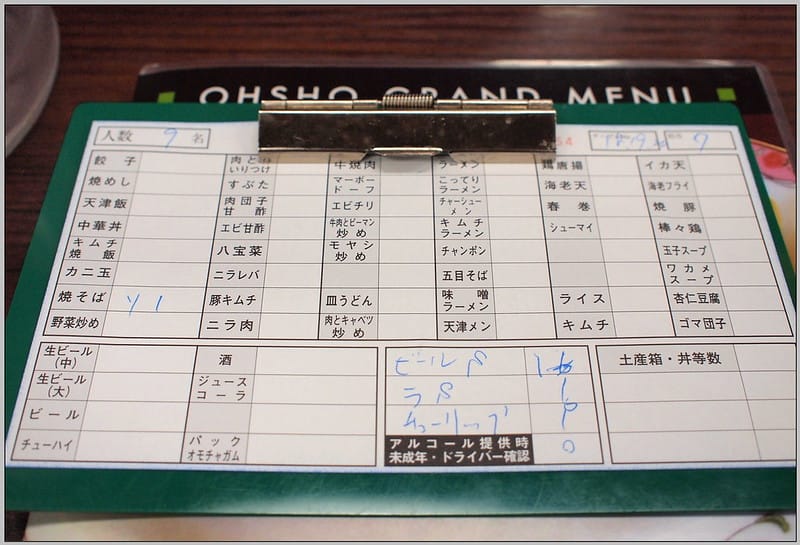 OHSHO GRAND MENU
人数 9 名
餃子 牛焼肉 ラーメン 鶏唐揚 イカ天
焼めし すぶた マーボードーフ こってりラーメン 海老天 海老フライ
天津飯 肉団子甘酢 エビチリ チャーシューメン 春巻 焼豚
中華丼 エビ甘酢 牛肉とピーマン炒め キムチラーメン シューマイ 棒々鶏
キムチ焼飯 八宝菜 モヤシ炒め チャンポン 玉子スープ
カニ玉 ニラレバ 五目そば ワカメスープ
焼そば 1 豚キムチ 皿うどん 味噌ラーメン ライス 杏仁豆腐
野菜炒め ニラ肉 肉とキャベツ炒め 天津メン キムチ ゴマ団子
生ビール(中) 酒 ビール 土産箱・丼等数
生ビール(大) ジュースコーラ
ビール チューリップ
チューハイ パックオモチャガム アルコール提供時
未成年・ドライバー確認